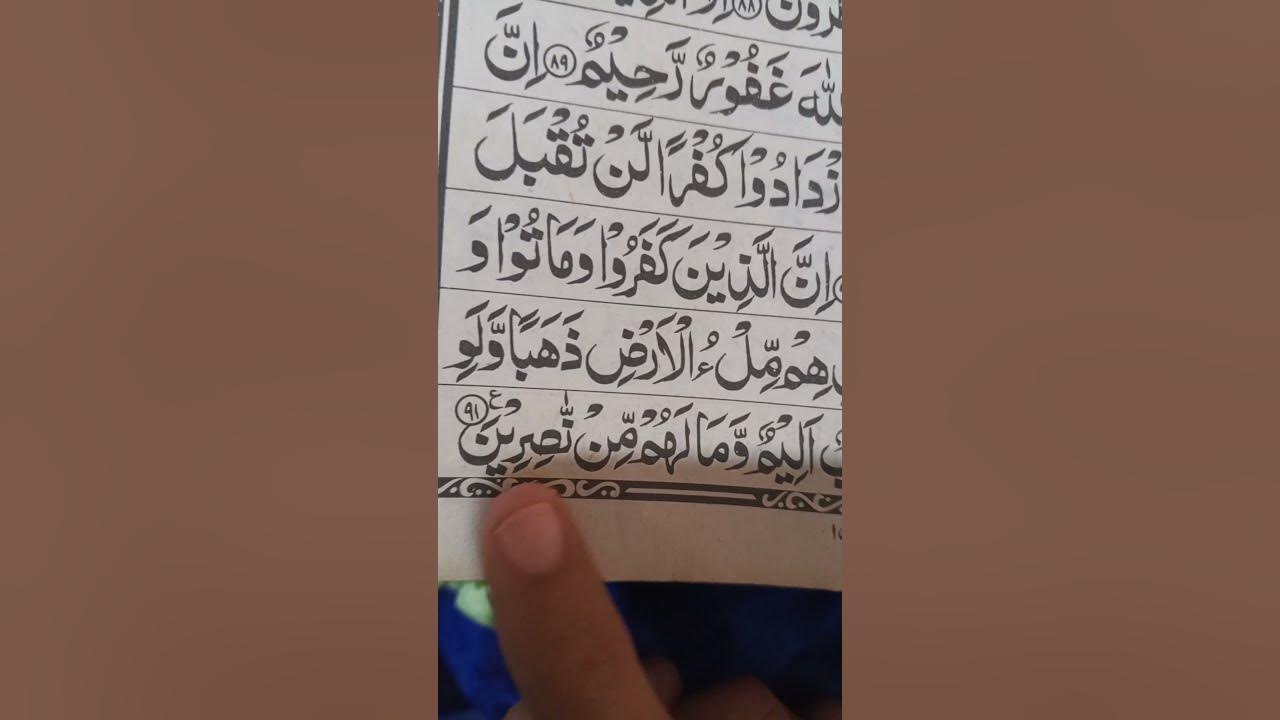 غَفُوْرٌ رَّحِيْمٌ ﴿٨٩﴾ اِنَّ
ازْدَادُوْا كُفْرًا لَّنْ تُقْبَلَ
اِنَّ الَّذِيْنَ كَفَرُوْا وَمَاتُوْا وَ
هِمْ مِّلْءُ الْاَرْضِ ذَهَبًا وَّلَوِ
اَلِيْمٌ وَّمَا لَهُمْ مِّنْ نّٰصِرِيْنَ ﴿٩١﴾ ع